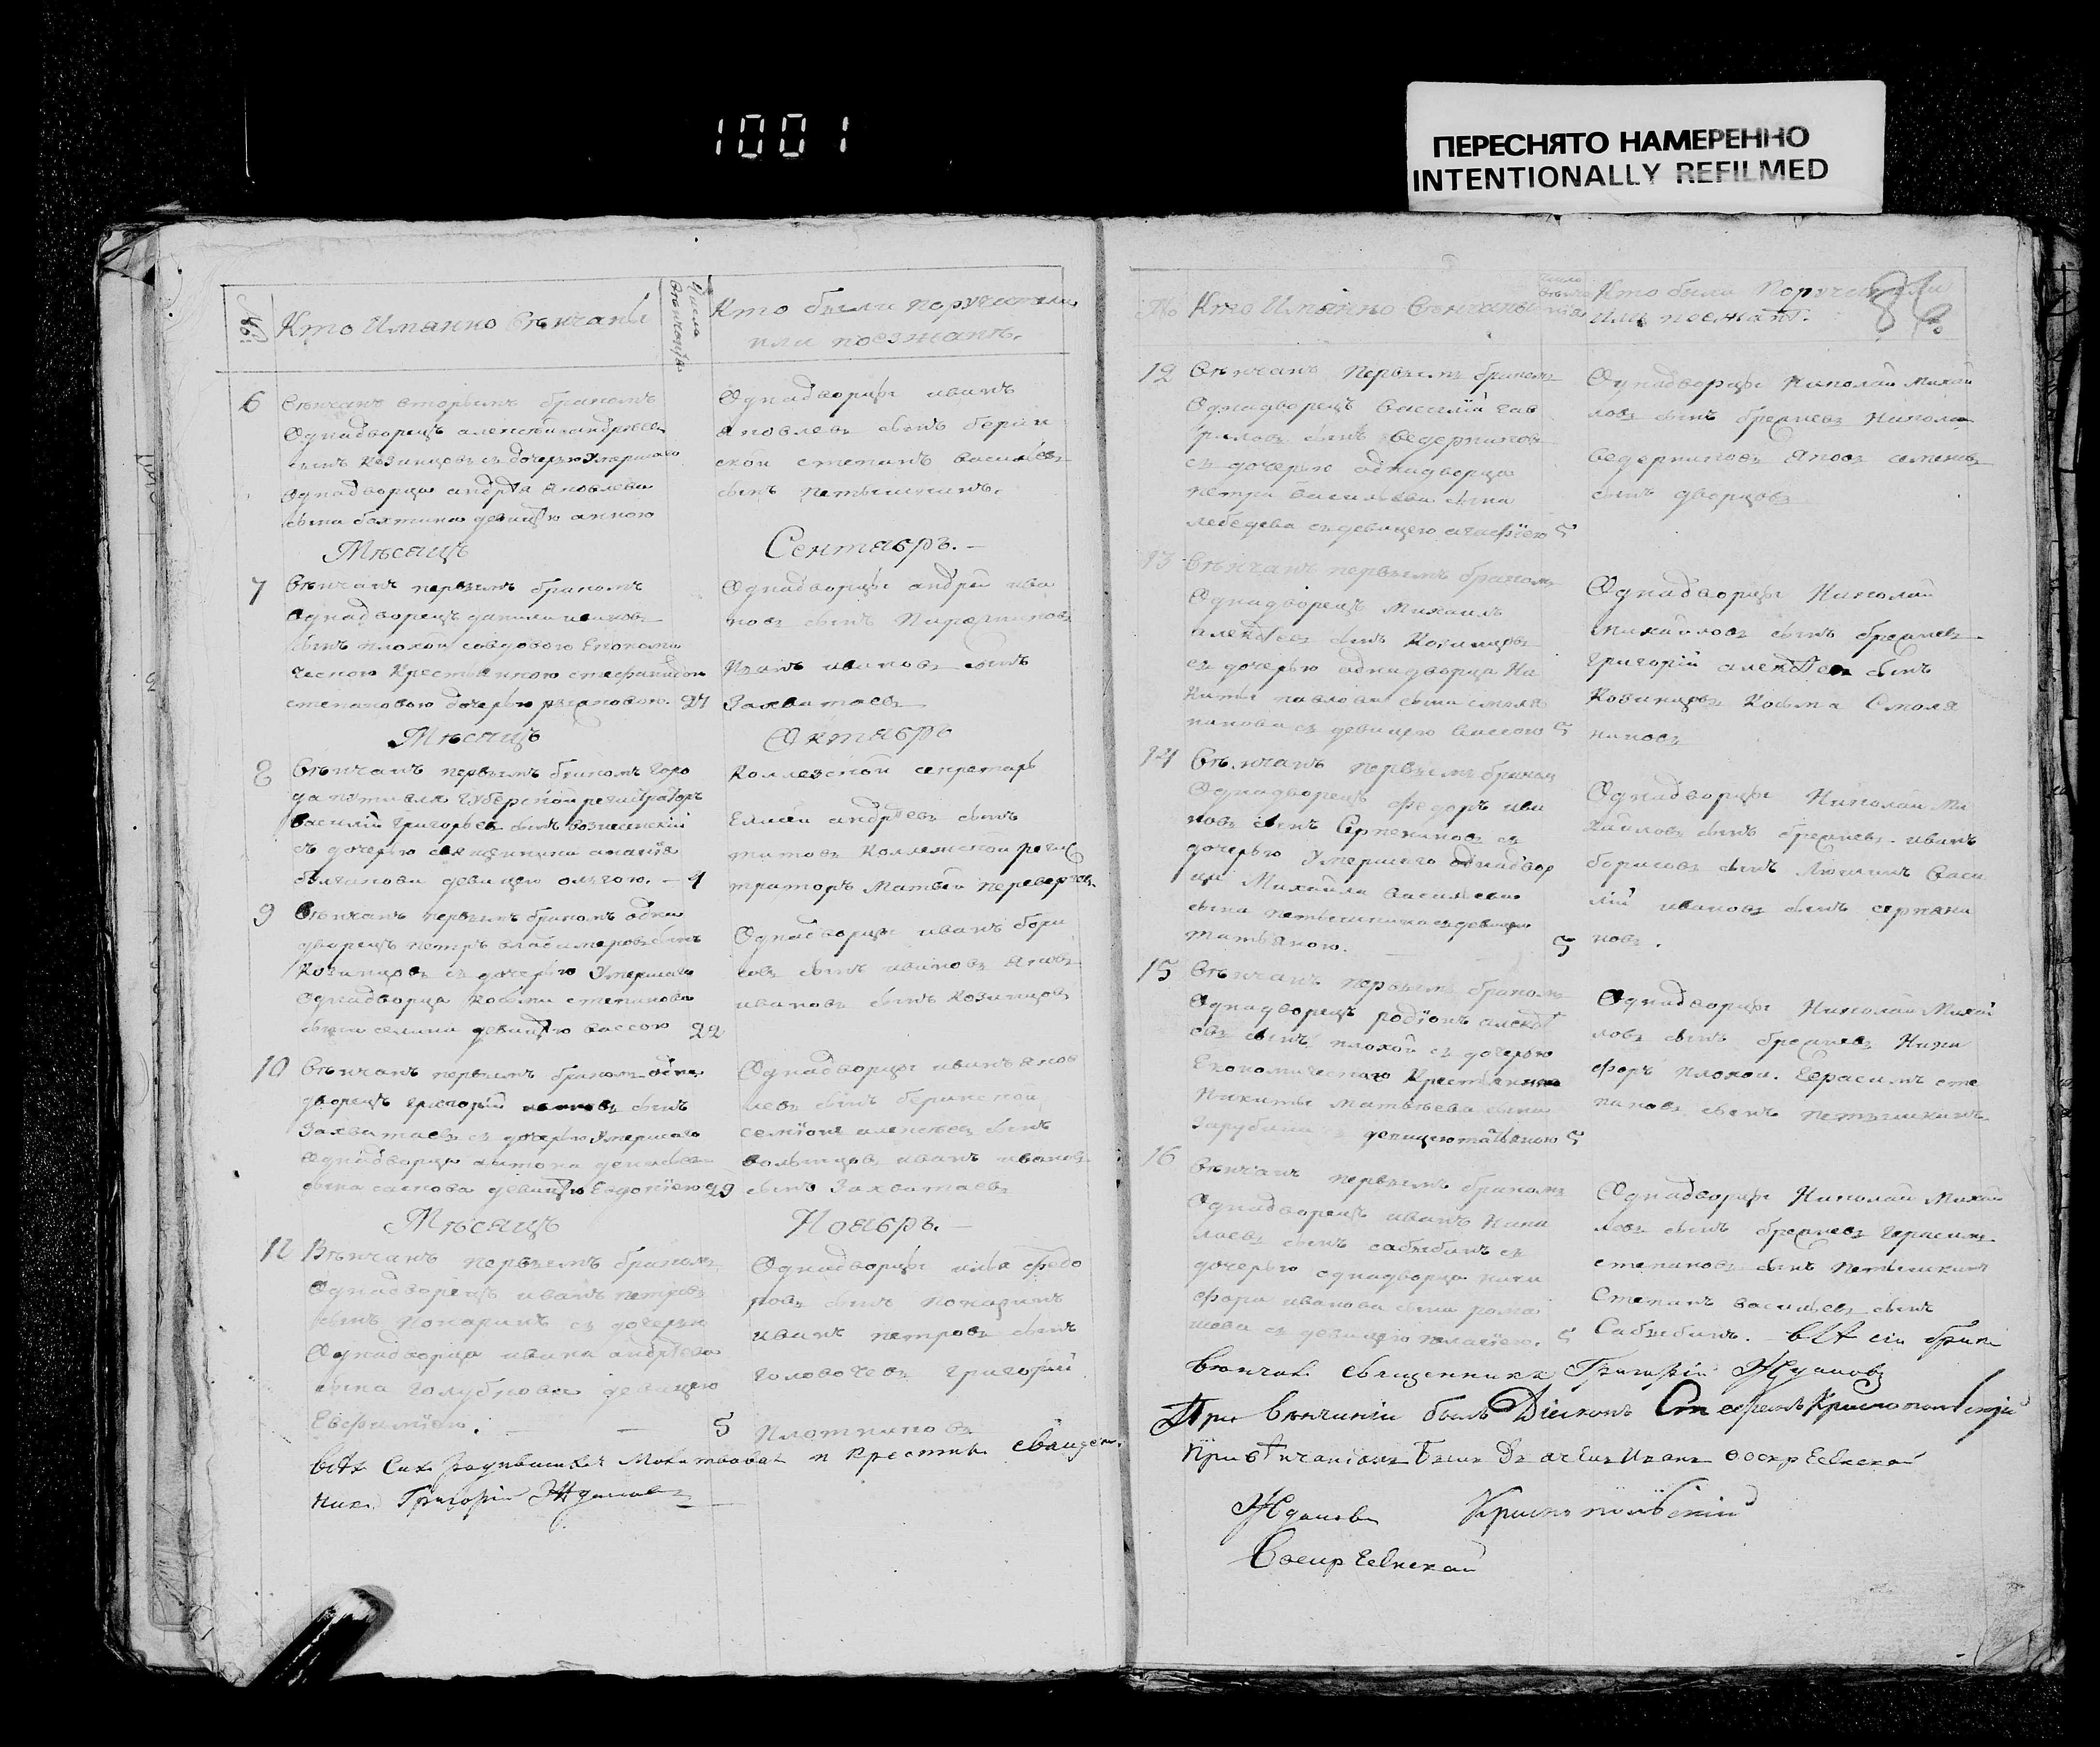 1001
ПЕРЕСНЯТО НАМЕРЕННО
INTENTIONALLY REFILMED
№
Кто Имянно Вѣнчаны
Числа Вѣнчанїя
Кто были поручители
или поезжанѣ.
6
Вѣнчанъ вторымъ бракомъ
Однадворецъ алексѣй андрѣевъ
сынъ Козинцовъ съ дочерью Умершаго
Однадворца андрѣя яковлева
сына бахтина девицѣю анною
Однадворцы иванъ
яковлевъ сынъ берин
ской степанъ васильевъ
сынъ петышкинъ.
Мѣсяцъ
Сентябръ.
7
Вѣнчанъ первымъ бракомъ
Однадворецъ данила ивановъ
сынъ плохой совдовою Економи
ческою Крестьянкою стефанидою
степановою дочерью 27
Однадворцы андрей ива
новъ сынъ
Иванъ ивановъ сынъ
Захватаевъ
Мѣсяцъ
Октябрь
8
Вѣнчанъ первымъ бракомъ горо
да путивля Губерской регистраторъ
василїй григорьевъ сынъ вознесенскїй
съ дочерью священника
девицею ольгою. 1
Коллезской секретарь
Елисей андрѣевъ сынъ
титовъ Коллежской регис
траторъ Матвѣй
9
Вѣнчанъ первымъ бракомъ одна
дворецъ петръ владимеровъ сынъ
Козинцовъ съ дочерью Умершаго
Однадворца космы степанова
сына селина девицѣю вассою 22
Однадворцы иванъ бори
совъ сынъ ивановъ яковъ
ивановъ сынъ Козинцовъ
10
Вѣнчанъ первымъ бракомъ одна
дворецъ григорїй ивановъ сынъ
Захватаевъ съ дочерью Умершаго
Однадворца антона
сына девицѣю Евдокїею 29
Однадворцы иванъ яков
левъ сынъ беринской
семїонъ алексѣевъ сынъ
иванъ ивановъ
сынъ Захватаевъ
Мѣсяцъ
Ноябръ.
11
Вѣнчанъ первымъ бракомъ
Однадворецъ иванъ петровъ
сынъ Понаринъ съ дочерью
Однадворца ивана андрѣева
сына голубкова девицею
Евфимїею. 5
Однадворцы илья федо
ровъ сынъ понаринъ
иванъ петровъ сынъ
головачевъ григорїй
плотниковъ
Молитвовал и Крестилъ священ
никъ Григорїй Ждановъ
№
Кто Имянно Вѣнчаны
Кто были Поручители
или поезжанѣ.
12
Вѣнчанъ Первымъ бракомъ
Однадворецъ василїй гав
риловъ сынъ Ведерниковъ
съ дочерью однадворца
петра васильева сына
лебедева съ девицею агафїею 5
Однадворцы Николай михай
ловъ сынъ Никола
Ведерниковъ яковъ семеновъ
сынъ дворцовъ
13
Вѣнчанъ первымъ бракомъ
Однадворецъ михаилъ
алексѣевъ сынъ Козинцовъ
съ дочерью однадворца Ни
киты павлова сына смоля
никова съ девицею вассою 5
Однадворцы Николай
михайловъ сынъ
григорїй алексѣевъ сынъ
Козинцовъ Косьма Смоля
никовъ
14
Вѣнчанъ первымъ бракомъ
Однадворецъ федоръ ива
новъ сынъ съ
дочерью Умершаго однадвор
ца Михайла васильева
сына петышкина съ девицею
татьяною. 5
Однадворцы Николай Ми
хайловъ сынъ иванъ
борисовъ сынъ Васи
лїй ивановъ сынъ
новъ.
15
Вѣнчанъ первымъ бракомъ
Однадворецъ родїонъ алексѣ
евъ сынъ плохой съ дочерью
Економическаго Крестьянина
Никиты матвѣева сына
Зарубина съ девицею татьяною 5
Однадворцы Николай Михай
ловъ сынъ Ники
форъ плохой. Герасимъ сте
пановъ сынъ петышкинъ
16
Вѣнчанъ первымъ бракомъ
Однадворецъ иванъ Нико
лаевъ сынъ сабыбинъ съ
дочерью однадворца ники
фора иванова сына рома
шова съ девицею пелагїею. 5
Однадворцы Николай Михай
ловъ сынъ герасимъ
степановъ сынъ петышкинъ
Степанъ васильевъ сынъ
Сабыбинъ. всѣ сїи браки
вѣнчалъ священникъ Григорїй Ждановъ
При вѣнчанїи былъ Дїяконъ Стефанъ Краснопольскїй
При вѣнчанїи былъ Дьячекъ Иванъ Воскресенской
Ждановъ Краснопольскїй
Воскресенской